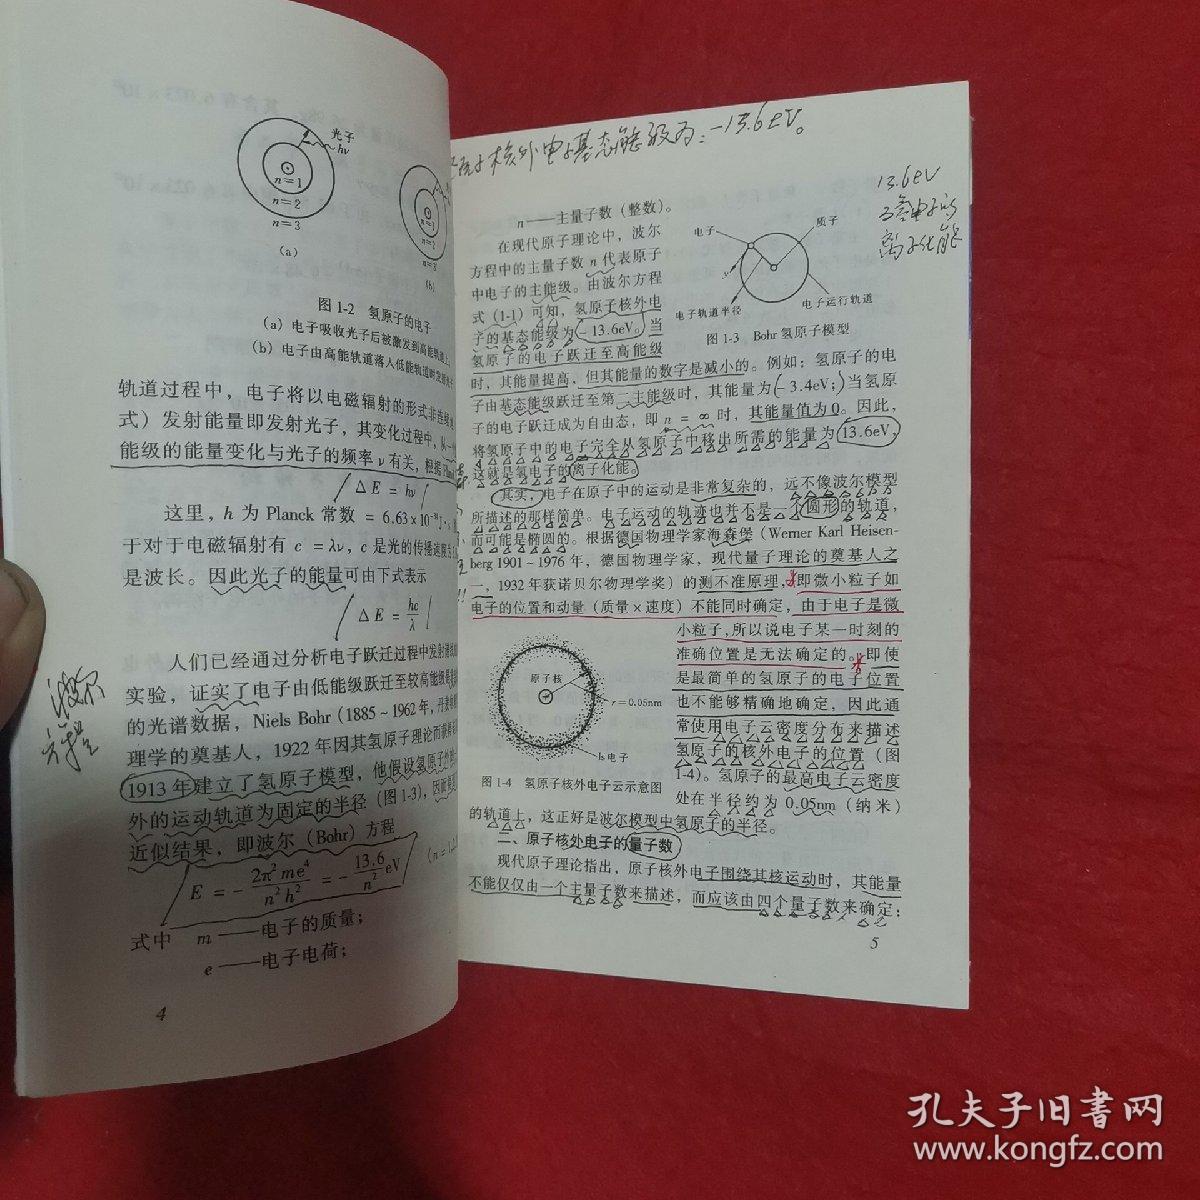 光子
hν
n=1
n=2
n=3
(a)
n=1
n=2
n=3
(b)
图 1-2 氢原子的电子
(a) 电子吸收光子后被激发到高能轨道上
(b) 电子由高能轨道落入低能轨道时
轨道过程中，电子将以电磁辐射的形式非连续
式）发射能量即发射光子，其变化过程中，从一
能级的能量变化与光子的频率 ν 有关，根据
Δ E = hν
这里，h 为 Planck 常数 = 6.63×10⁻³⁴ J·
于对于电磁辐射有 c = λν，c 是光的传播速度
是波长。因此光子的能量可由下式表示
Δ E = hc/λ
人们已经通过分析电子跃迁过程中发射
实验，证实了电子由低能级跃迁至较高能级
的光谱数据，Niels Bohr (1885～1962年，丹麦
理学的奠基人，1922 年因其氢原子理论而获
1913 年建立了氢原子模型，他假设氢原子
外的运动轨道为固定的半径（图 1-3），因而
近似结果，即波尔（Bohr）方程
E = - 2π² me⁴/n² h² = - 13.6/n² eV (n=1,2
式中 m ——电子的质量；
e ——电子电荷；
4
波尔
方程
原子核外电子基态能级为：-13.6eV。
13.6eV
离子化能
n——主量子数（整数）。
在现代原子理论中，波尔
方程中的主量子数 n 代表原子
中电子的主能级。由波尔方程
式 (1-1) 可知，氢原子核外电
子的基态能级为 -13.6eV。当
氢原子的电子跃迁至高能级
电子
质子
电子轨道半径
电子运行轨道
图 1-3 Bohr 氢原子模型
时，其能量提高，但其能量的数字是减小的。例如：氢原子的电
子由基态能级跃迁至第二主能级时，其能量为 -3.4eV；当氢原
子的电子跃迁成为自由态，即 n = ∞ 时，其能量值为 0。因此，
将氢原子中的电子完全从氢原子中移出所需的能量为 13.6eV，
这就是氢电子的离子化能。
其实，电子在原子中的运动是非常复杂的，远不像波尔模型
所描述的那样简单。电子运动的轨迹也并不是一个圆形的轨道，
而可能是椭圆的。根据德国物理学家海森堡（Werner Karl Heisen-
berg 1901～1976 年，德国物理学家，现代量子理论的奠基人之
一，1932 年获诺贝尔物理学奖）的测不准原理，即微小粒子如
电子的位置和动量（质量×速度）不能同时确定，由于电子是微
小粒子，所以说电子某一时刻的
准确位置是无法确定的。即使
是最简单的氢原子的电子位置
也不能够精确地确定，因此通
常使用电子云密度分布来描述
氢原子的核外电子的位置（图
1-4）。氢原子的最高电子云密度
处在半径约为 0.05nm（纳米）
原子核
r=0.05nm
1s 电子
图 1-4 氢原子核外电子云示意图
的轨道上，这正好是波尔模型中氢原子的半径。
二、原子核外电子的量子数
现代原子理论指出，原子核外电子围绕其核运动时，其能量
不能仅仅由一个主量子数来描述，而应该由四个量子数来确定：
5
孔夫子旧书网
www.kongfz.com